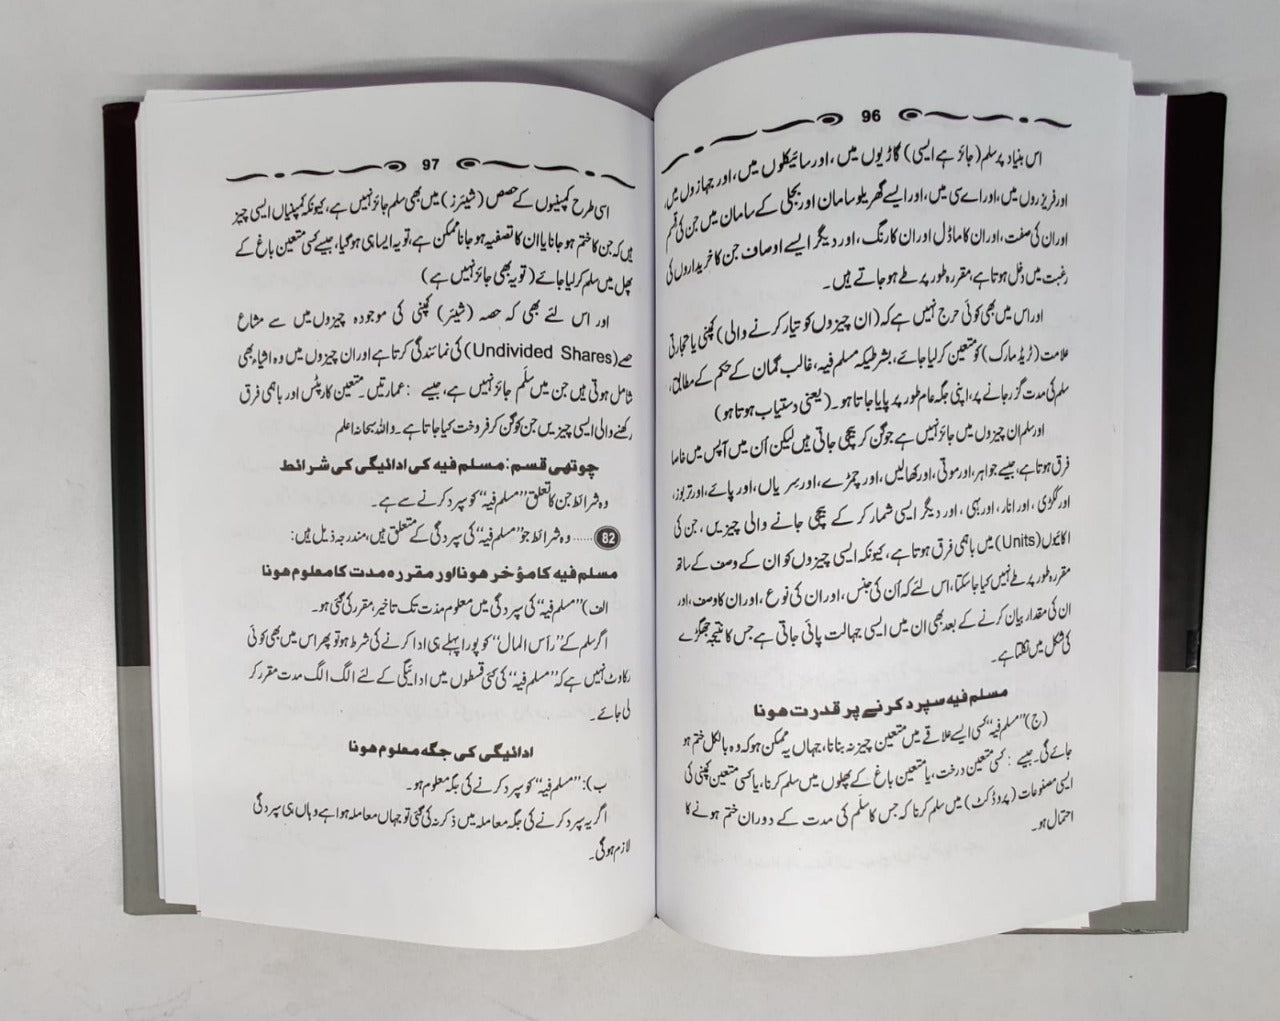 96
اس بنیاد پر سلم (جائز ہے ایسی) گاڑیوں میں، اور سائیکلوں میں، اور جہازوں میں،
اور فریزروں میں، اور اے سی میں، اور ایسے گھریلو سامان اور بجلی کے سامان میں جن کی قسم
اور ان کی صفت، اور ان کا ماڈل اور ان کا رنگ، اور دیگر ایسے اوصاف جن کا خریداروں کی
رغبت میں دخل ہوتا ہے، مقررہ طور پر طے ہو جاتے ہیں۔
اور اس میں بھی کوئی حرج نہیں ہے کہ (ان چیزوں کو تیار کرنے والی) کمپنی یا تجارتی
علامت (ٹریڈ مارک) کو متعین کر لیا جائے، بشرطیکہ مسلم فیہ، غالب گمان کے حکم کے مطابق،
سلم کی مدت گزر جانے پر، اپنی جگہ عام طور پر پایا جاتا ہو۔ (یعنی دستیاب ہوتا ہو)
اور سلم ان چیزوں میں جائز نہیں ہے جو گن کر بیچی جاتی ہیں لیکن اُن میں آپس میں خاصا
فرق ہوتا ہے، جیسے جواہر، اور موتی، اور کھالیں، اور چمڑے، اور سِریاں، اور پائے، اور تربوز،
اور ککڑی، اور انار، اور بہی، اور دیگر ایسی شمار کر کے بیچی جانے والی چیزیں، جن کی
اکائیوں (Units) میں باہمی فرق ہوتا ہے، کیونکہ ایسی چیزوں کو ان کے وصف کے ساتھ
مقررہ طور پر طے نہیں کیا جا سکتا، اس لئے کہ اُن کی جنس، اور ان کی نوع، اور ان کا وصف، اور
ان کی مقدار بیان کرنے کے بعد بھی ان میں ایسی جہالت پائی جاتی ہے جس کا نتیجہ جھگڑے
کی شکل میں نکلتا ہے۔
مسلم فیہ سپرد کرنے پر قدرت ہونا
(ج) ”مسلم فیہ“ کسی ایسے علاقے میں متعین چیز نہ بنانا، جہاں یہ ممکن ہو کہ وہ بالکل ختم ہو
جائے گی۔ جیسے : کسی متعین درخت، یا متعین باغ کے پھلوں میں سلم کرنا، یا کسی متعین کمپنی کی
ایسی مصنوعات (پروڈکٹ) میں سلم کرنا کہ جس کا سلَم کی مدت کے دوران ختم ہونے کا
احتمال ہو۔
97
اسی طرح کمپنیوں کے حصص (شیئرز) میں بھی سلم جائز نہیں ہے، کیونکہ کمپنیاں ایسی چیز
ہیں کہ جن کا ختم ہو جانا یا ان کا تصفیہ ہو جانا ممکن ہے، تو یہ ایسا ہی ہو گیا، جیسے کسی متعین باغ کے
پھل میں سلم کر لیا جائے (تو یہ بھی جائز نہیں ہے)
اور اس لئے بھی کہ حصہ (شیئر) کمپنی کی موجودہ چیزوں میں سے مشاع
حصے (Undivided Shares) کی نمائندگی کرتا ہے اور ان چیزوں میں وہ اشیاء بھی
شامل ہوتی ہیں جن میں سلَم جائز نہیں ہے، جیسے : عمارتیں۔ متعین کارپٹس اور باہمی فرق
رکھنے والی ایسی چیزیں جن کو گن کر فروخت کیا جاتا ہے۔ واللہ سبحانہ اعلم
چوتھی قسم: مسلم فیہ کی ادائیگی کی شرائط
وہ شرائط جن کا تعلق ”مسلم فیہ“ کو سپرد کرنے سے ہے۔
82 ...... وہ شرائط جو ”مسلم فیہ“ کی سپردگی کے متعلق ہیں، مندرجہ ذیل ہیں:
مسلم فیہ کا مؤخر ہونا اور مقررہ مدت کا معلوم ہونا
الف) ”مسلم فیہ“ کی سپردگی میں معلوم مدت تک تاخیر مقرر کی گئی ہو۔
اگر سلم کے ”رأس المال“ کو پورا پہلے ہی ادا کرنے کی شرط ہو تو پھر اس میں بھی کوئی
رکاوٹ نہیں ہے کہ ”مسلم فیہ“ کی کئی قسطوں میں ادائیگی کے لئے الگ الگ مدت مقرر کر
لی جائے۔
ادائیگی کی جگہ معلوم ہونا
ب): ”مسلم فیہ“ کو سپرد کرنے کی جگہ معلوم ہو۔
اگر یہ سپرد کرنے کی جگہ معاملہ میں ذکر نہ کی گئی تو جہاں معاملہ ہوا ہے وہاں ہی سپردگی
لازم ہوگی۔